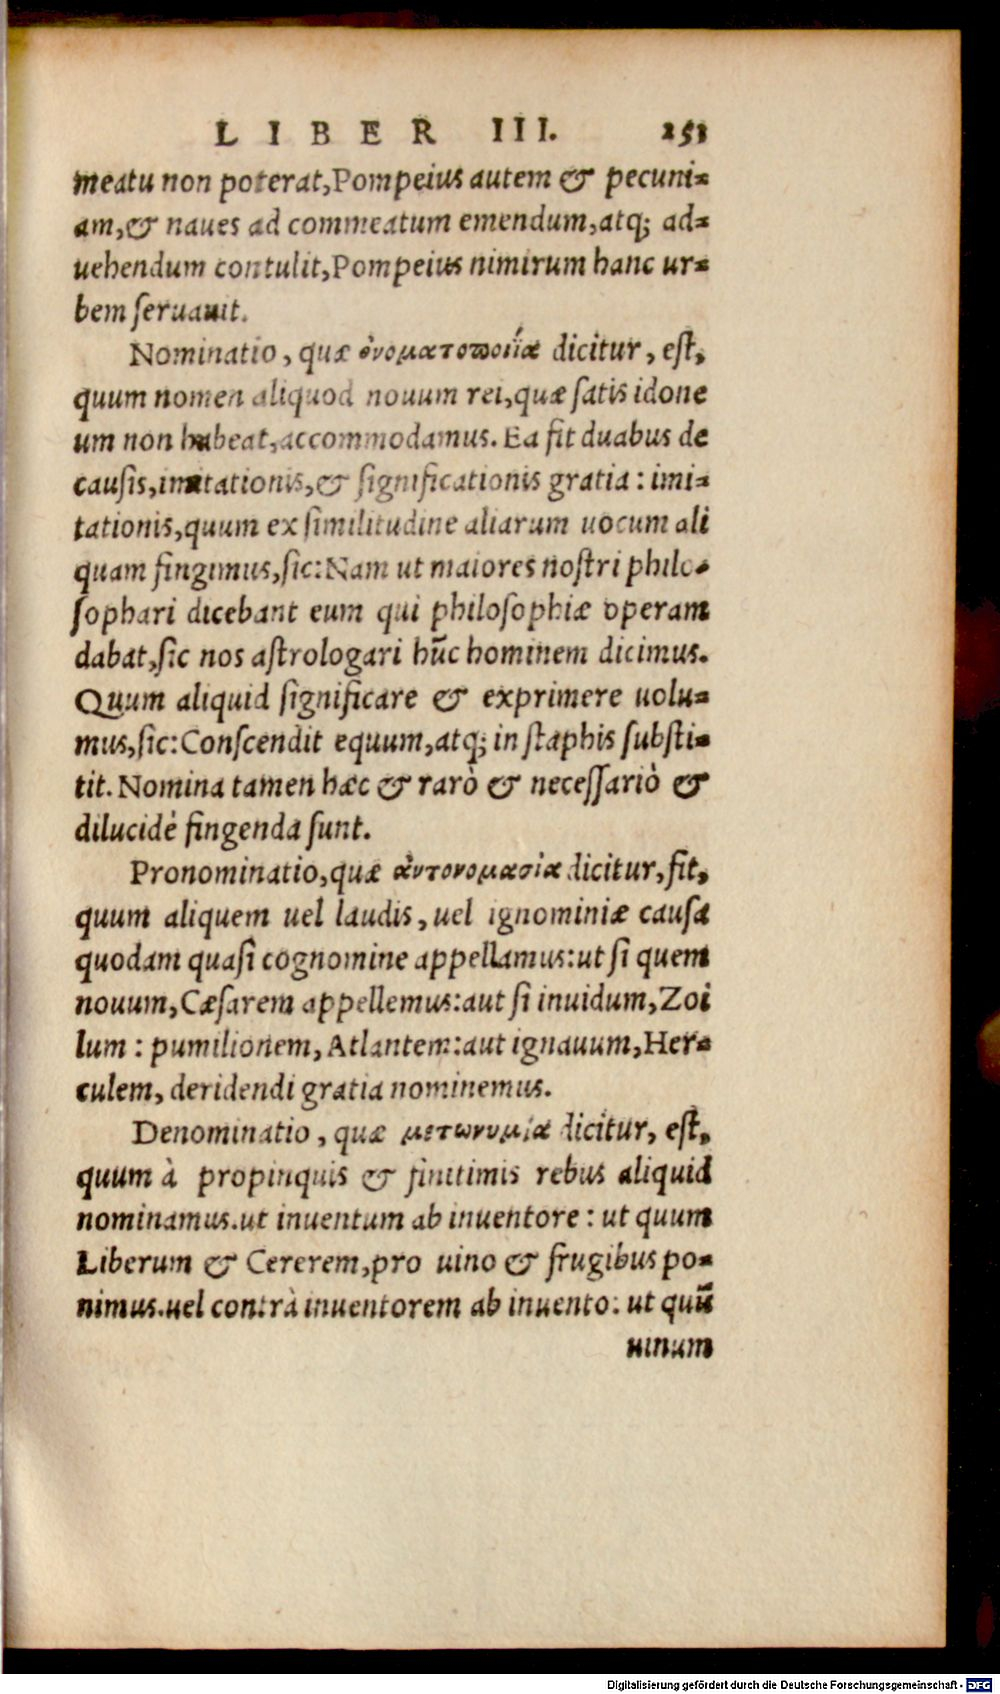 LIBER III. 251
meatu non poterat, Pompeius autem & pecuni-
am, & naues ad commeatum emendum, atq; ad-
uehendum contulit, Pompeius nimirum hanc ur-
bem seruauit.
Nominatio, quæ ὀνοματοποιΐα dicitur, est,
quum nomen aliquod nouum rei, quæ satis idone
um non habeat, accommodamus. Ea fit duabus de
causis, imitationis, & significationis gratia: imi-
tationis, quum ex similitudine aliarum uocum ali
quam fingimus, sic: Nam ut maiores nostri philo-
sophari dicebant eum qui philosophiæ operam
dabat, sic nos astrologari hūc hominem dicimus.
Quum aliquid significare & exprimere uolu-
mus, sic: Conscendit equum, atq; in staphis substi-
tit. Nomina tamen hæc & rarò & necessariò &
dilucidè fingenda sunt.
Pronominatio, quæ ἀντονομασία dicitur, fit,
quum aliquem uel laudis, uel ignominiæ causa
quodam quasi cognomine appellamus: ut si quem
nouum, Cæsarem appellemus: aut si inuidum, Zoi
lum: pumilionem, Atlantem: aut ignauum, Her-
culem, deridendi gratia nominemus.
Denominatio, quæ μετωνυμία dicitur, est,
quum à propinquis & finitimis rebus aliquid
nominamus. ut inuentum ab inuentore: ut quum
Liberum & Cererem, pro uino & frugibus po-
nimus. uel contrà inuentorem ab inuento: ut quū
uinum
Digitalisierung gefördert durch die Deutsche Forschungsgemeinschaft - DFG